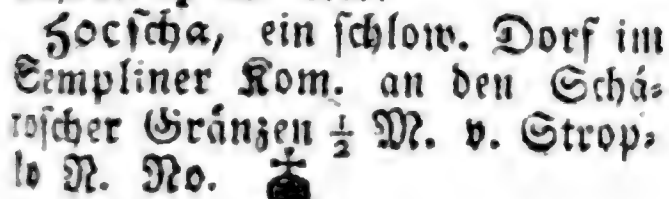 Hocscha, ein schlow. Dorf im
Sempliner Kom. an den Schá-
roscher Gränzen ½ M. v. Strop-
ko N. No.